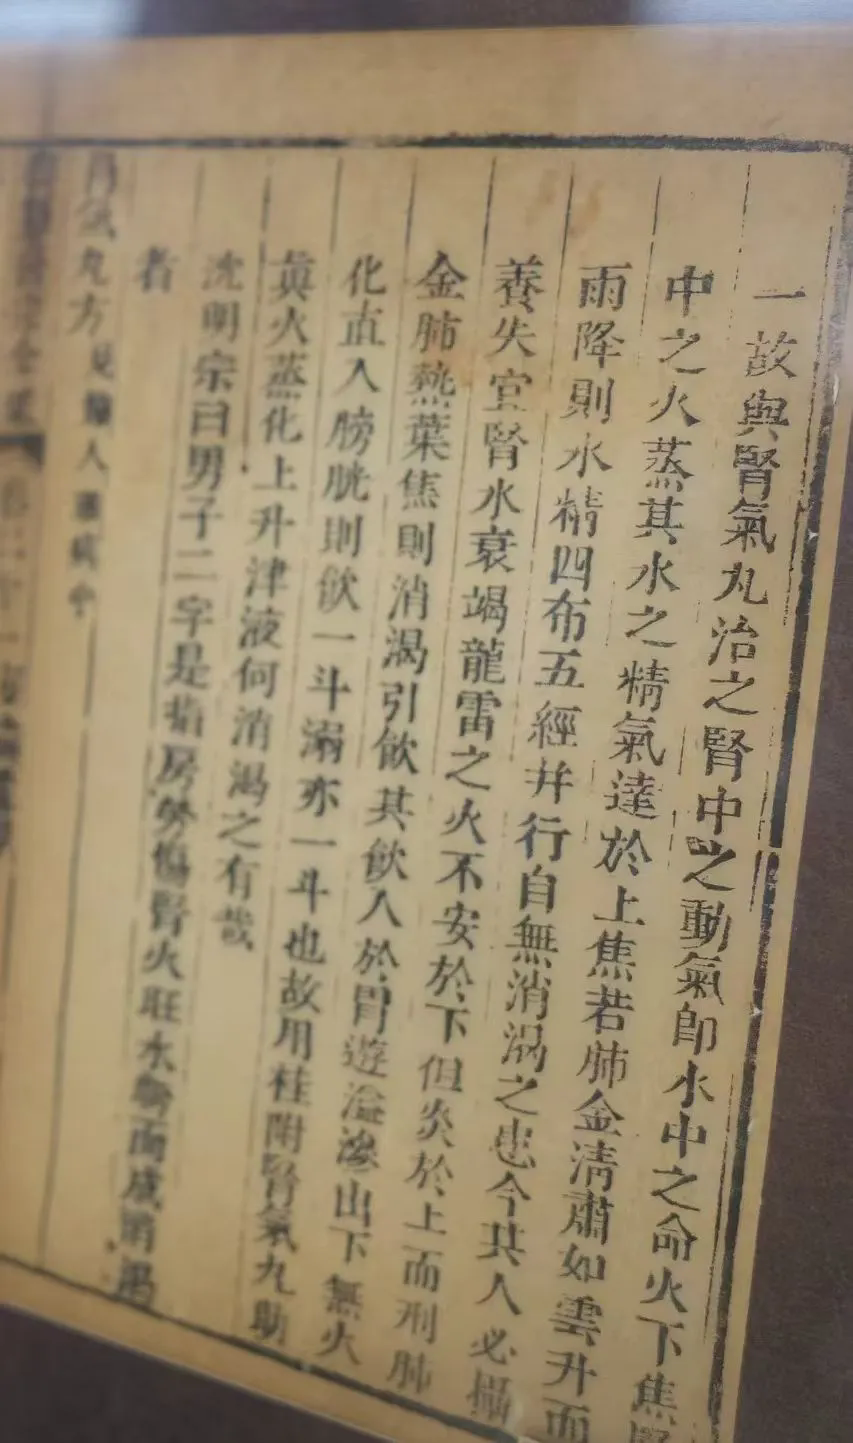 一故與腎氣丸治之腎中之動氣即水中之命火下焦腎
中之火蒸其水之精氣達於上焦若肺金清肅如雲升而
雨降則水精四布五經并行自無消渴之患今其人必攝
養失宜腎水衰竭龍雷之火不安於下但炎於上而刑肺
金肺熱葉焦則消渴引飲其飲入於胃遊溢滲出下無火
化直入膀胱則飲一斗溺亦一斗也故用桂附腎氣丸助
真火蒸化上升津液何消渴之有哉
沈明宗曰男子二字是指房勞傷腎火旺水虧而成消渴
者
腎氣丸方見婦人雜病中